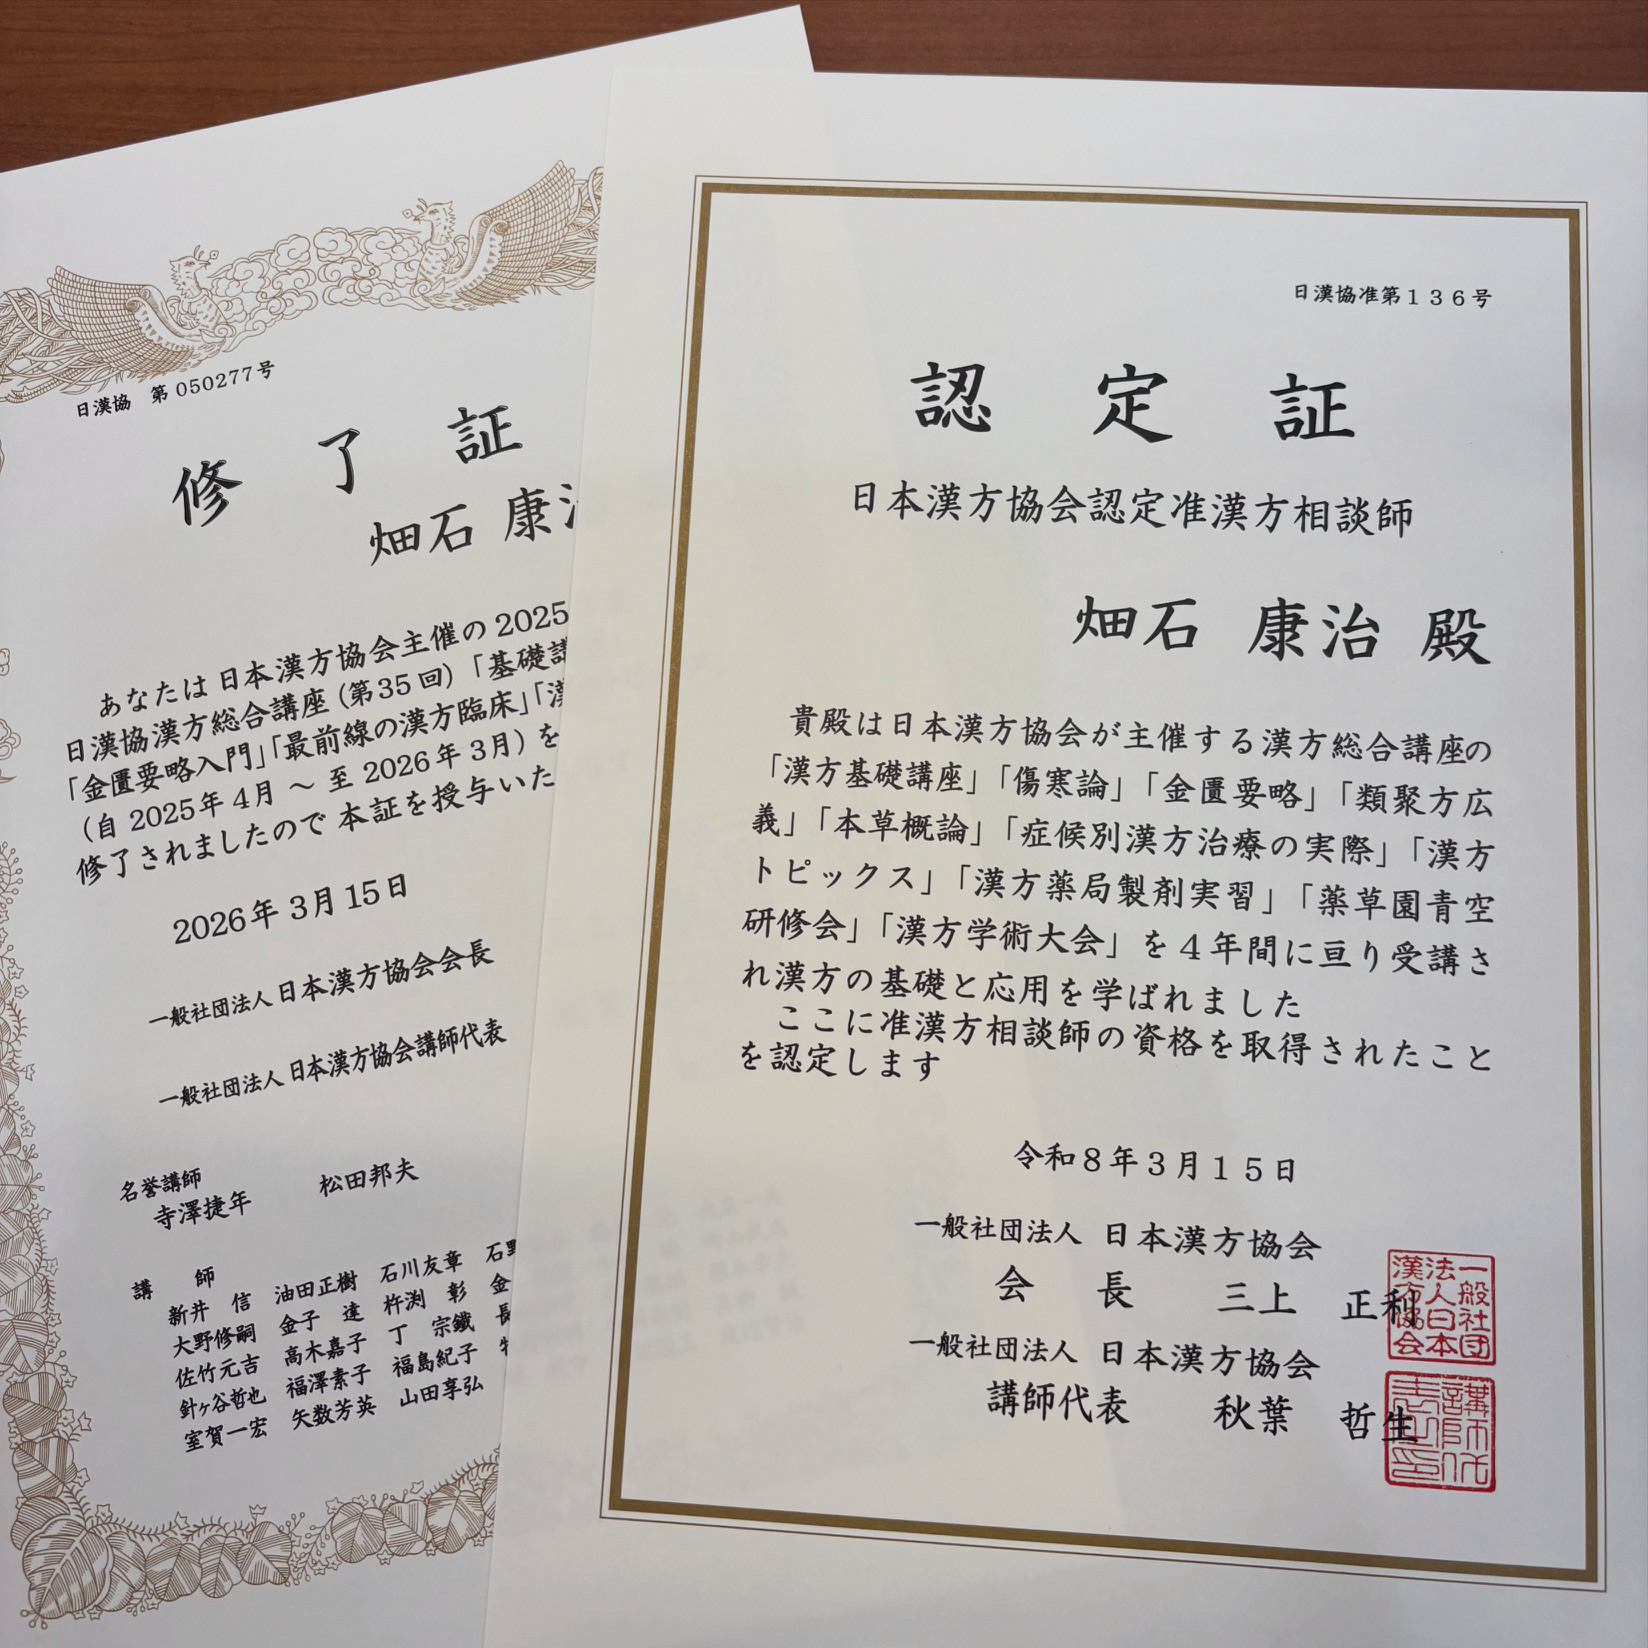 日漢協 第050277号
修了証
畑石 康
あなたは日本漢方協会主催の2025
日漢協漢方総合講座(第35回)「基礎講
「金匱要略入門」「最前線の漢方臨床」「漢
(自 2025年4月 ~ 至 2026年3月)を
修了されましたので本証を授与いた
2026年3月15日
一般社団法人日本漢方協会会長
一般社団法人日本漢方協会講師代表
名誉講師
寺澤捷年 松田邦夫
講師
新井 信 油田正樹 石川友章 石野
大野修嗣 金子 達 杵渕 彰 金
佐竹元吉 高木嘉子 丁 宗鐵 長
針ヶ谷哲也 福澤素子 福島紀子
室賀一宏 矢数芳英 山田享弘
日漢協准第136号
認定証
日本漢方協会認定准漢方相談師
畑石 康治 殿
貴殿は日本漢方協会が主催する漢方総合講座の
「漢方基礎講座」「傷寒論」「金匱要略」「類聚方広
義」「本草概論」「症候別漢方治療の実際」「漢方
トピックス」「漢方薬局製剤実習」「薬草園青空
研修会」「漢方学術大会」を4年間に亘り受講さ
れ漢方の基礎と応用を学ばれました
ここに准漢方相談師の資格を取得されたこと
を認定します
令和8年3月15日
一般社団法人 日本漢方協会
会長 三上 正利
一般社団法人 日本漢方協会
講師代表 秋葉 哲生
一般社団
法人日本
漢方協会
講師代
表之印